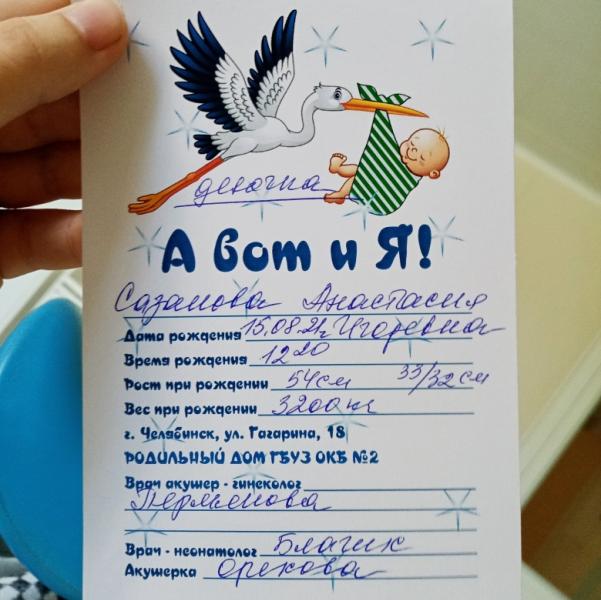 девочка
А вот и Я!
Сазанова Анастасия
Дата рождения 15.08.21г Игоревна
Время рождения 12 20
Рост при рождении 54см 33/32 см
Вес при рождении 3200
г. Челябинск, ул. Гагарина, 18
РОДИЛЬНЫЙ ДОМ ГБУЗ ОКБ №2
Врач акушер - гинеколог
Врач - неонатолог
Акушерка Орехова